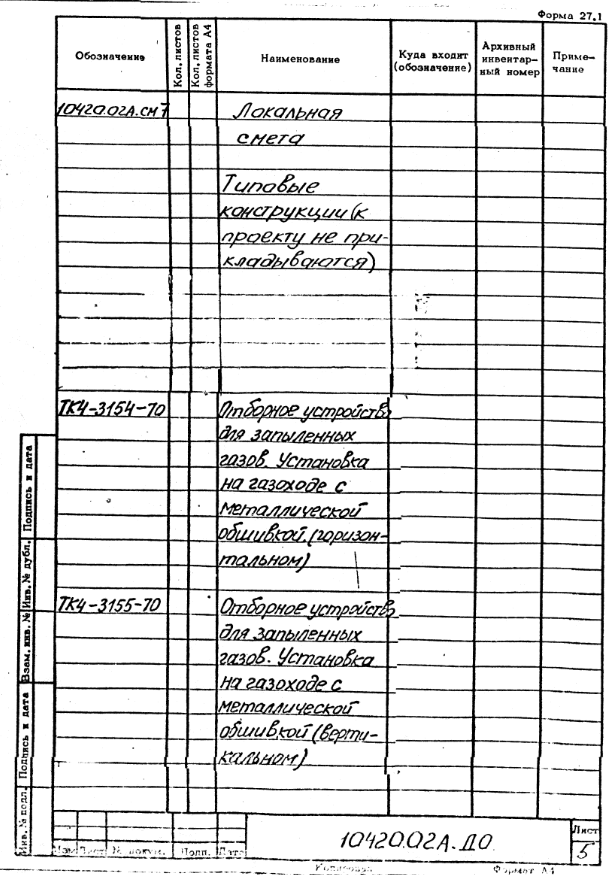 Форма 27.1
Обозначение
Кол. листов
Кол. листов формата А4
Наименование
Куда входит (обозначение)
Архивный инвентар-ный номер
Приме-чание
10420.02А.СМ7 Локальная
смета
Типовые
конструкции (к
проекту не при-
кладываются)
ТК4-3154-70 Отборное устройств
для запыленных
газов. Установка
на газоходе с
металлической
обшивкой (горизон-
тальном)
ТК4-3155-70 Отборное устройств
для запыленных
газов. Установка
на газоходе с
металлической
обшивкой (верти-
кальном)
Подпись и дата
Инв. № дубл.
Взам. инв. №
Подпись и дата
Инв. № подл.
Изм Лист № докум. Подп. Дата
10420.02А.Д0.
Лист
5
Копировал
Формат А4